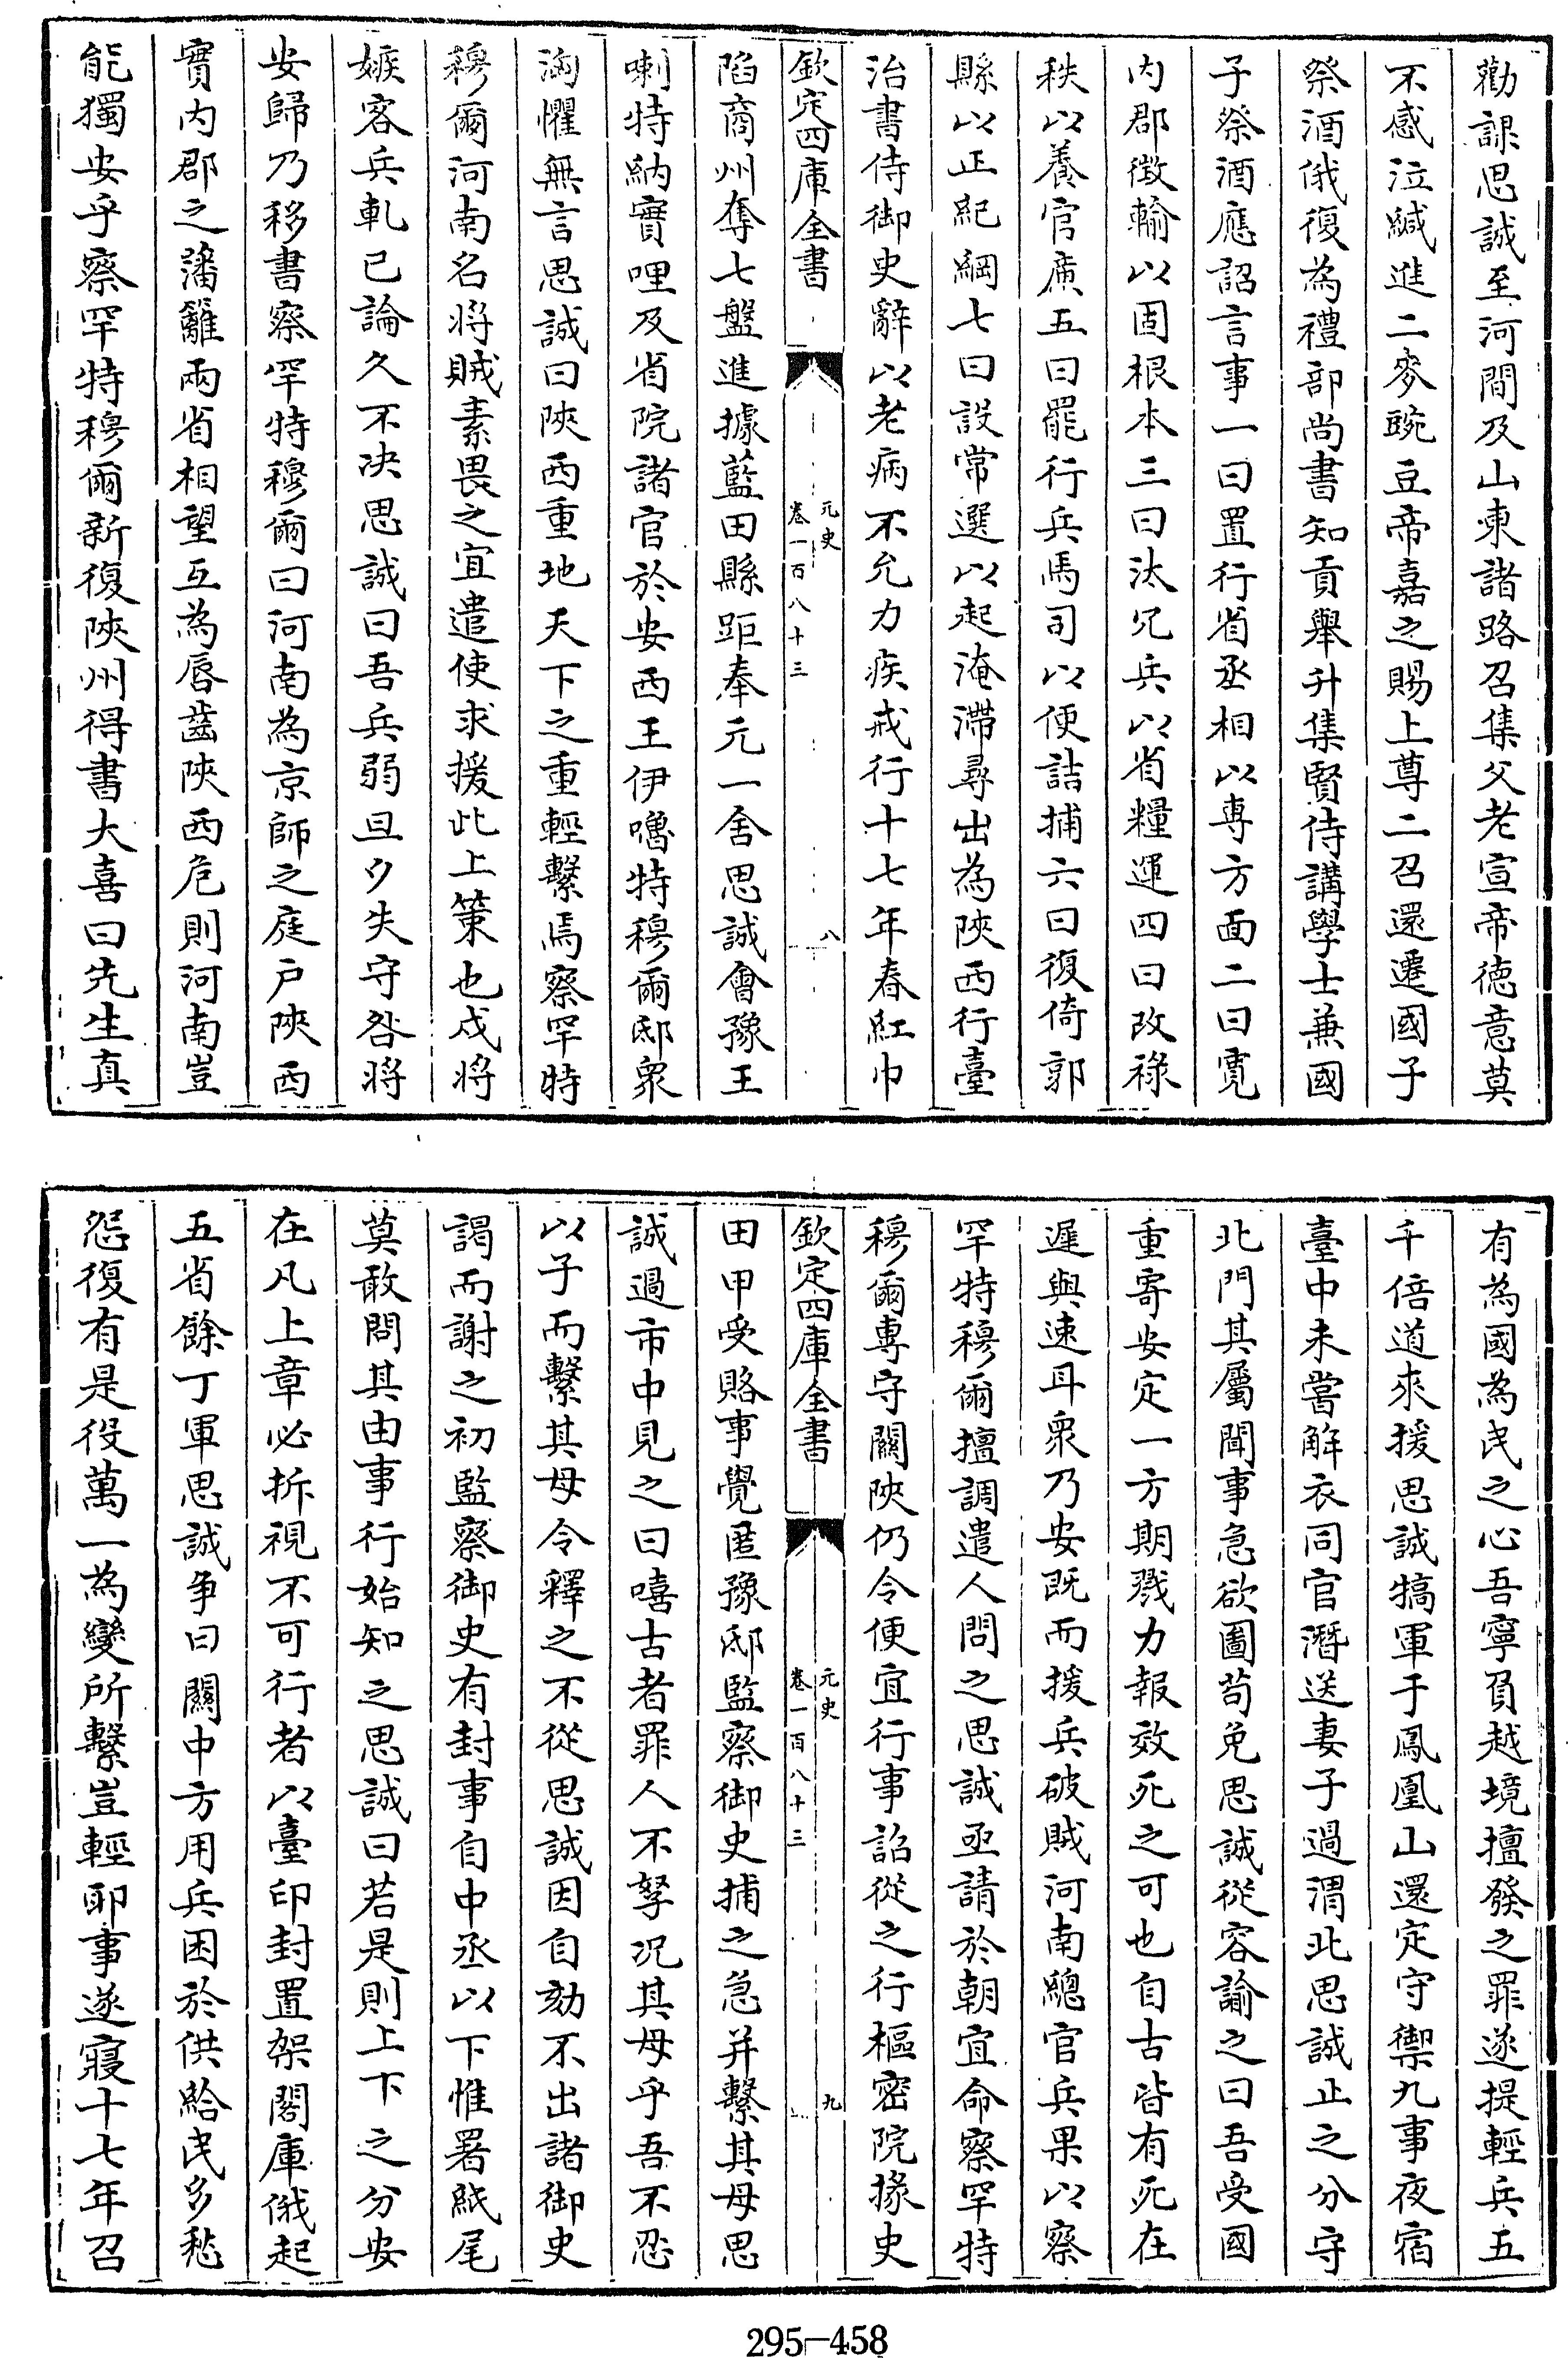 勸課思誠至河間及山東諸路召集父老宣帝德意莫
不感泣緘進二麥豌豆帝嘉之賜上尊二召還遷國子
祭酒俄復為禮部尚書知貢舉升集賢侍講學士兼國
子祭酒應詔言事一曰置行省丞相以專方面二曰寛
内郡徵輸以固根本三曰汰冗兵以省糧運四曰改祿
秩以養官廉五曰罷行兵馬司以便詰捕六曰復倚郭
縣以正紀綱七曰設常選以起淹滯尋出為陜西行臺
治書侍御史辭以老病不允力疾戒行十七年春紅巾
欽定四庫全書
元史
卷一百八十三
八
陷商州奪七盤進據藍田縣距奉元一舍思誠會豫王
喇特納實哩及省院諸官於安西王伊嚕特穆爾邸衆
洶懼無言思誠曰陜西重地天下之重輕繫焉察罕特
穆爾河南名將賊素畏之宜遣使求援此上策也戍將
嫉客兵軋已論久不决思誠曰吾兵弱旦夕失守咎將
安歸乃移書察罕特穆爾曰河南為京師之庭户陜西
實内郡之藩籬兩省相望互為唇齒陜西危則河南豈
能獨安乎察罕特穆爾新復陜州得書大喜曰先生真
有為國為民之心吾寧負越境擅發之罪遂提輕兵五
千倍道來援思誠犒軍于鳳凰山還定守禦九事夜宿
臺中未嘗解衣同官潛送妻子過渭北思誠止之分守
北門其屬聞事急欲圖苟免思誠從容諭之曰吾受國
重寄安定一方期戮力報效死之可也自古皆有死在
遲與速耳衆乃安既而援兵破賊河南總官兵果以察
罕特穆爾擅調遣人問之思誠亟請於朝宜命察罕特
穆爾專守關陜仍令便宜行事詔從之行樞密院掾史
欽定四庫全書
元史
卷一百八十三
九
田甲受賂事覺匿豫邸監察御史捕之急并繫其母思
誠過市中見之曰嘻古者罪人不孥况其母乎吾不忍
以子而繫其母令釋之不從思誠因自劾不出諸御史
謁而謝之初監察御史有封事自中丞以下惟署紙尾
莫敢問其由事行始知之思誠曰若是則上下之分安
在凡上章必拆視不可行者以臺印封置架閣庫俄起
五省餘丁軍思誠争曰關中方用兵困於供給民多愁
怨復有是役萬一為變所繫豈輕耶事遂寢十七年召
295-458